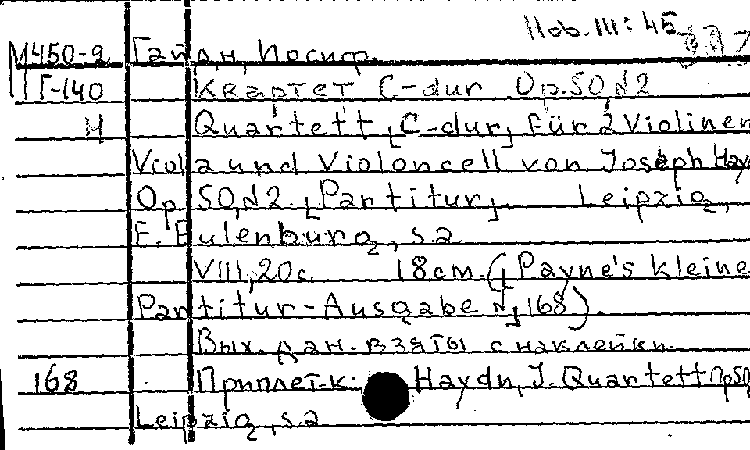 Hob. III: 45
М450-9 Гайдн, Иосиф.
Г-140 Квартет C-dur Op.50,№2
Н Quartett [C-dur] für 2 Violinen
Viola und Violoncell von Joseph Hay
Op 50,№2 [Partitur]. Leipzig,
E. Eulenburg, s a
VIII, 20с. 18см. ([Payne's kleine
Partitur-Ausgabe №] 168).
Вых. дан. взяты с наклейки.
168 Приплет. к: Haydn, J. Quartett Op 50
Leipzig, s.a